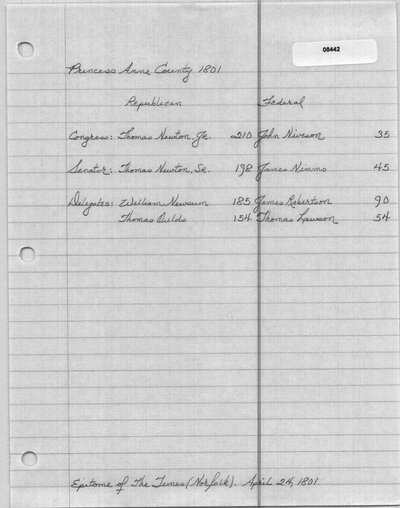 08442
Princess Anne County 1801
Republican Federal
Congress: Thomas Newton, Jr. 210 John Niveson 35
Senator: Thomas Newton, Sr. 198 James Nimmo 45
Delegates: William Newsum 185 James Robertson 90
Thomas 154 Thomas Lawson 54
Epitome of The Times (Norfolk). April 24, 1801